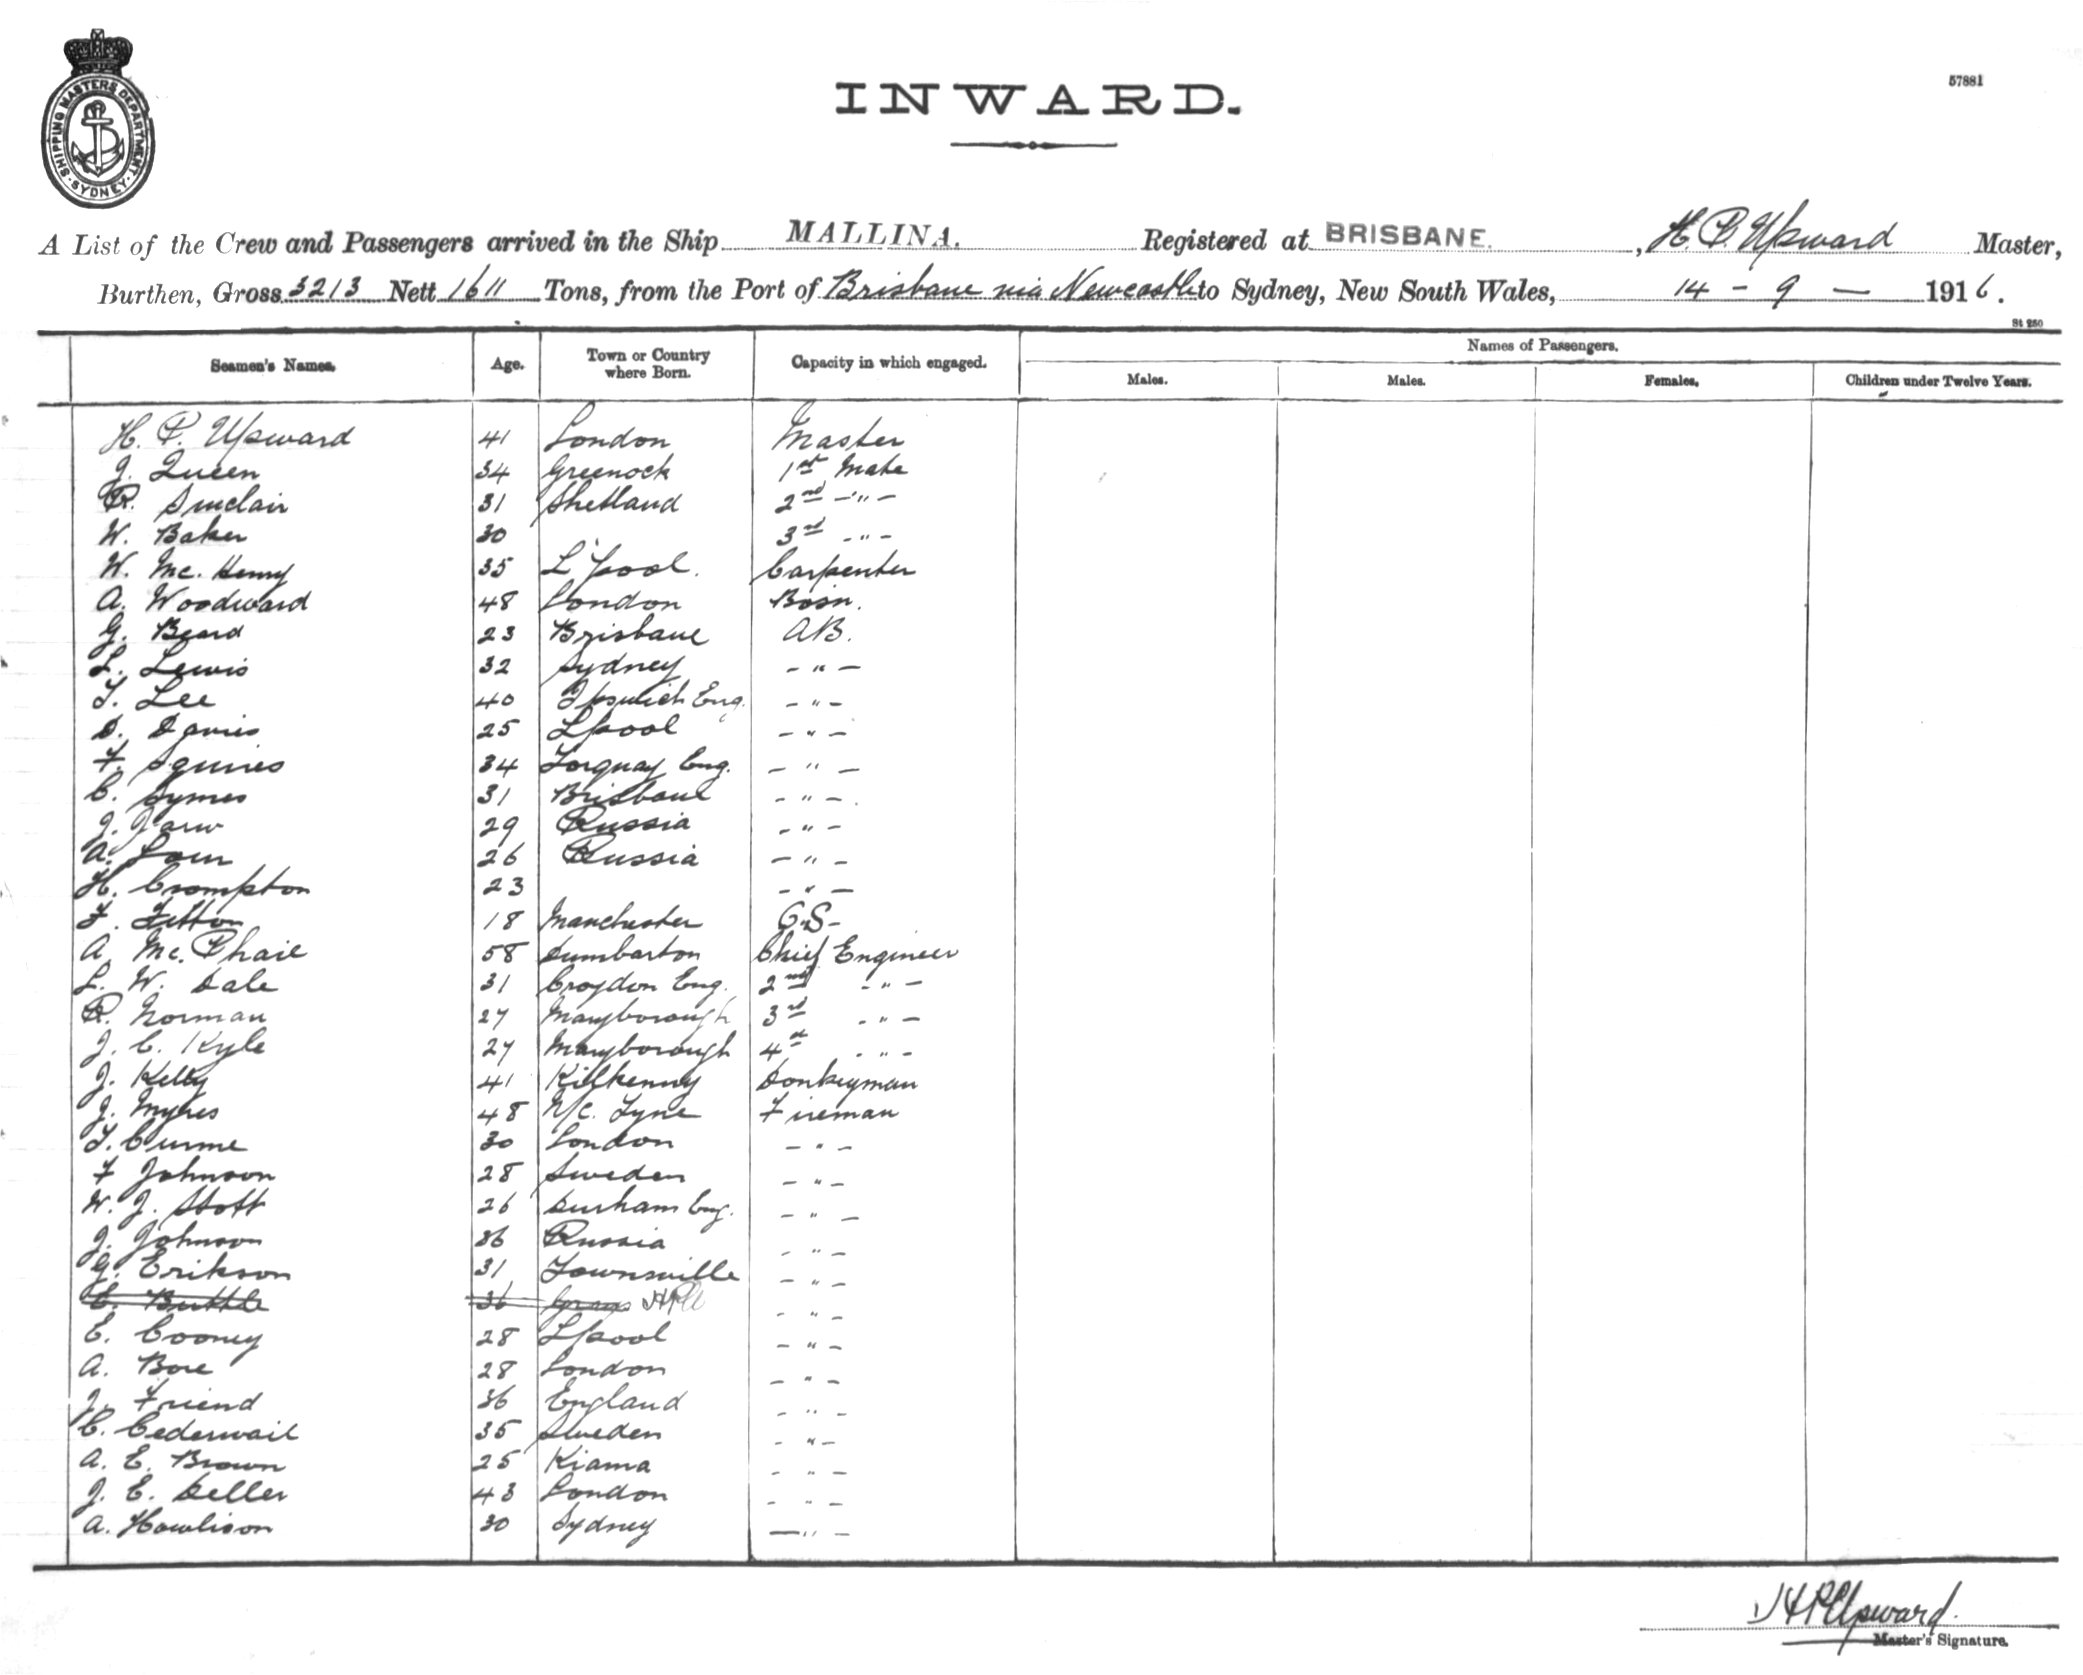 SHIPPING MASTERS DEPARTMENT · SYDNEY ·
INWARD.
57881
A List of the Crew and Passengers arrived in the Ship MALLINA. Registered at BRISBANE. , H. P. Upward Master,
Burthen, Gross 3213 Nett 1611 Tons, from the Port of Brisbane via Newcastle to Sydney, New South Wales, 14 - 9 - 1916.
St 250
Seamen's Names. Age. Town or Country where Born. Capacity in which engaged. Names of Passengers.
Males. Males. Females. Children under Twelve Years.
H. P. Upward 41 London Master
J. Queen 34 Greenock 1st Mate
R. Sinclair 31 Shetland 2nd -"-
W. Baker 30 3rd -"-
W. Mc. Henry 35 L'pool. Carpenter
A. Woodward 48 London Bosn.
G. Beard 23 Brisbane AB.
L. Lewis 32 Sydney -"-
T. Lee 40 Ipswich Eng. -"-
D. Davies 25 Lpool -"-
F. Squires 34 Torquay Eng. -"-
C. Symes 31 Brisbane -"-
J. 29 Russia -"-
A. 26 Russia -"-
H. Crompton 23 -"-
F. Fitton 18 Manchester O.S-
A. Mc. Phail 58 Dumbarton Chief Engineer
L. W. Dale 31 Croydon Eng. 2nd -"-
R. Norman 27 Maryborough 3rd -"-
J. C. Kyle 27 Maryborough 4th -"-
J. Kelly 41 Kilkenny Donkeyman
J. Myres 48 N/c. Tyne Fireman
T. Curme 30 London -"-
F Johnson 28 Sweden -"-
W. J. Stott 26 Durham Eng. -"-
J. Johnson 36 Russia -"-
G. Erikson 31 Townsville -"-
C. Buttle 36 HPU -"-
E. Cooney 28 Lpool -"-
A. Bore 28 London -"-
J. Friend 36 England -"-
C. Cederwail 35 Sweden -"-
A. E. Brown 25 Kiama -"-
J. E. Deller 43 London -"-
A. Howlison 30 Sydney -"-
HPUpward.
Master's Signature.